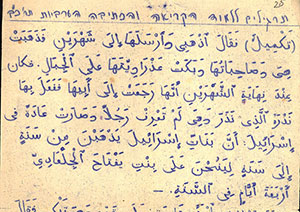 תרגילים ללמוד הקריאה והכתיבה הערבית
(تكميل) فقال اذهبي وأرسلها إلى شهرين فذهبت
هي وصاحباتها وبكت عذراويتها على الجبال. فكان
عند نهاية الشهرين أنها رجعت إلى أبيها ففعل بها
نذره الذي نذر وهي لم تعرف رجلا. وصارت عادة في
إسرائيل: أن بنات إسرائيل يذهبن من سنة
إلى سنة لينحن على بنت يفتاح الجلعادي
أربعة أيام في السنة. —